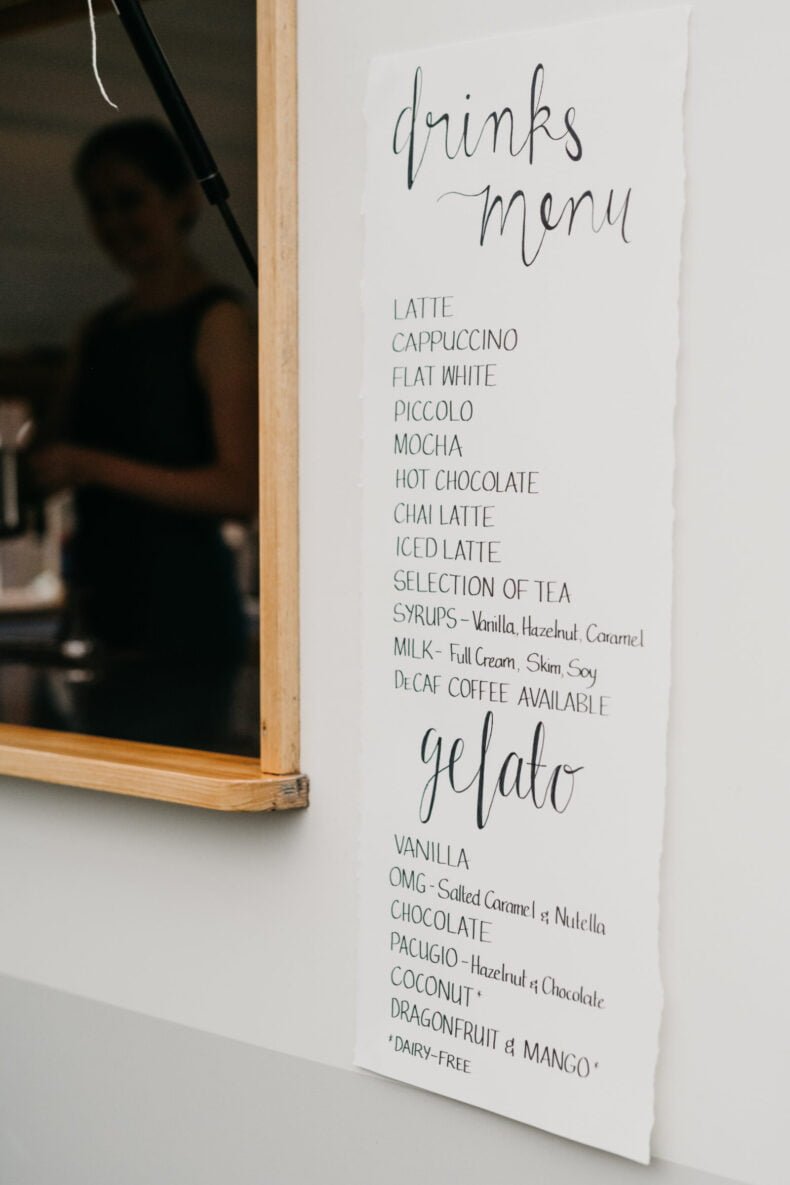 drinks
menu
LATTE
CAPPUCCINO
FLAT WHITE
PICCOLO
MOCHA
HOT CHOCOLATE
CHAI LATTE
ICED LATTE
SELECTION OF TEA
SYRUPS - Vanilla, Hazelnut, Caramel
MILK - Full Cream, Skim, Soy
DeCAF COFFEE AVAILABLE
gelato
VANILLA
OMG - Salted Caramel & Nutella
CHOCOLATE
PACUGIO - Hazelnut & Chocolate
COCONUT*
DRAGONFRUIT & MANGO*
*DAIRY-FREE